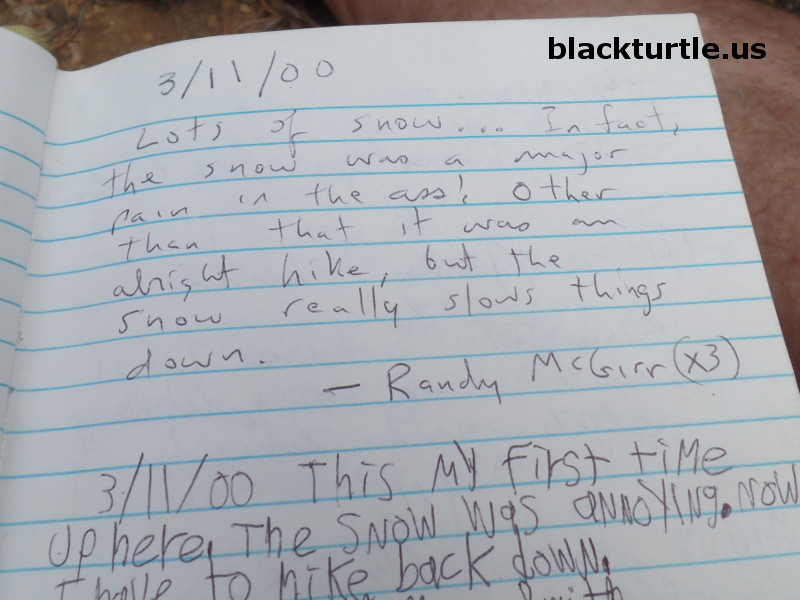 blackturtle.us
3/11/00
Lots of snow... In fact,
the snow was a major
pain in the ass! Other
than that it was an
alright hike, but the
snow really slows things
down.
— Randy McGirr (x3)
3/11/00 This my first time
up here. The snow was annoying. Now
I have to hike back down.